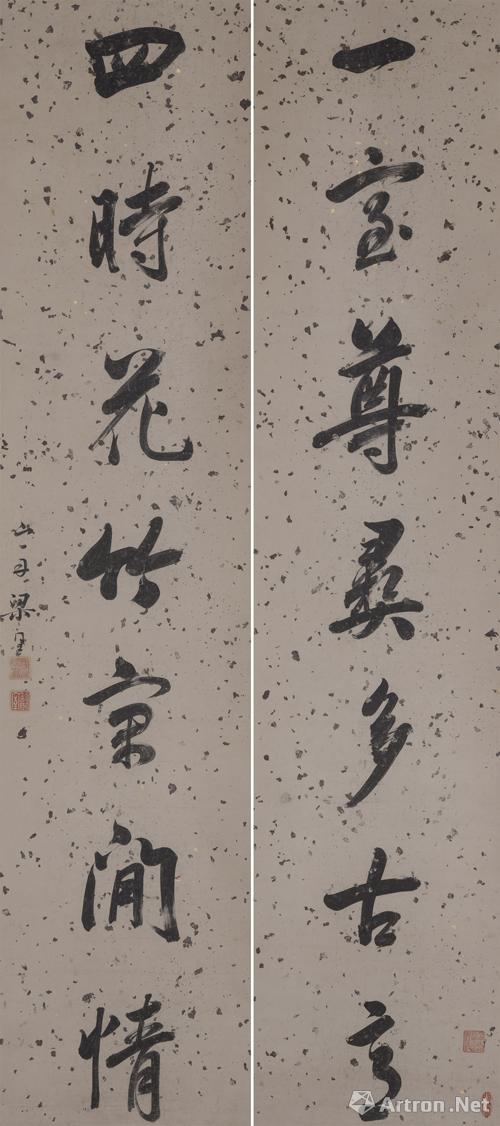 一室尊彝多古意
四時花竹閒情
山舟梁同書